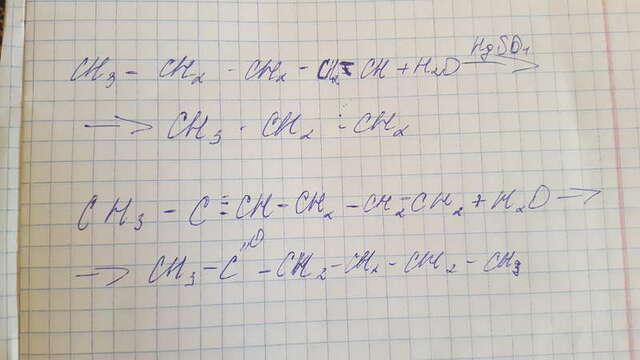 CH₃ – CH₂ – CH₂ – C≡CH + H₂O HgSO₄ →
→ CH₃ · CH₂ CH₂
CH₃ – C = CH – CH₂ – CH₂ – CH₂ + H₂O →
→ CH₃ – C"O – CH₂ – CH₂ – CH₂ – CH₃